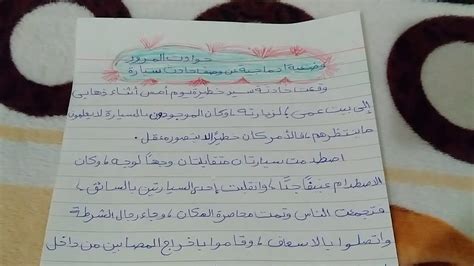 حوادث المرور
وضعية ادماجية عن وصف حادث سيارة
وقعت حادثة سير خطيرة يوم أمس أثناء ذهابي
إلى بيت عمي لزيارته، وكان الموجودون بالسيارة لا يعلمون
ما ينتظرهم، فالأمر كان خطيرًا لا يتصوره عقل.
اصطدمت سيارتان متقابلتان وجهًا لوجه، وكان
الاصطدام عنيفًا جدًّا، وانقلبت إحدى السيارتين بالسائق،
فتجمعت الناس وتمت محاصرة المكان، وجاء رجال الشرطة
واتصلوا بالاسعاف، وقاموا بإخراج المصابين من داخل